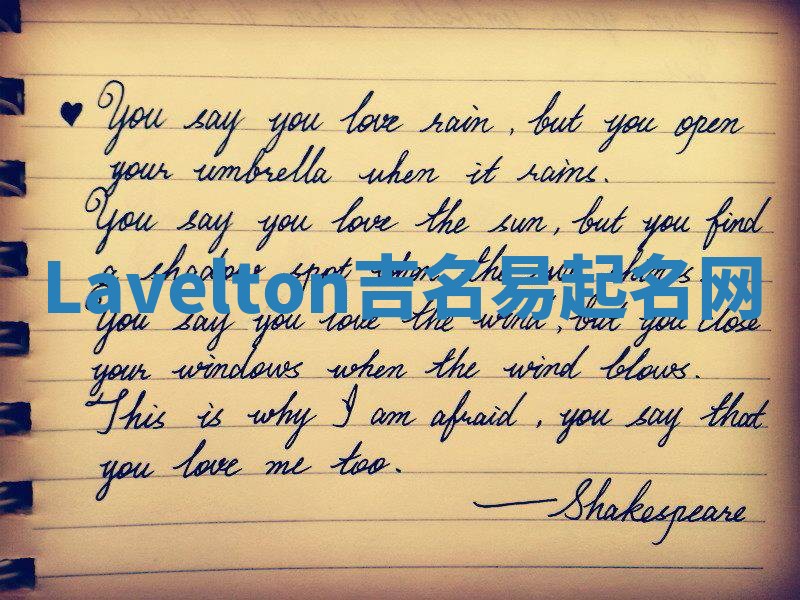 ♥ You say you love rain, but you open
your umbrella when it rains.
You say you love the sun, but you find
a shadow spot when the sun shines.
Lavelton吉名易起名网
You say you love the wind, but you close
your windows when the wind blows.
This is why I am afraid, you say that
you love me too.
—Shakespeare